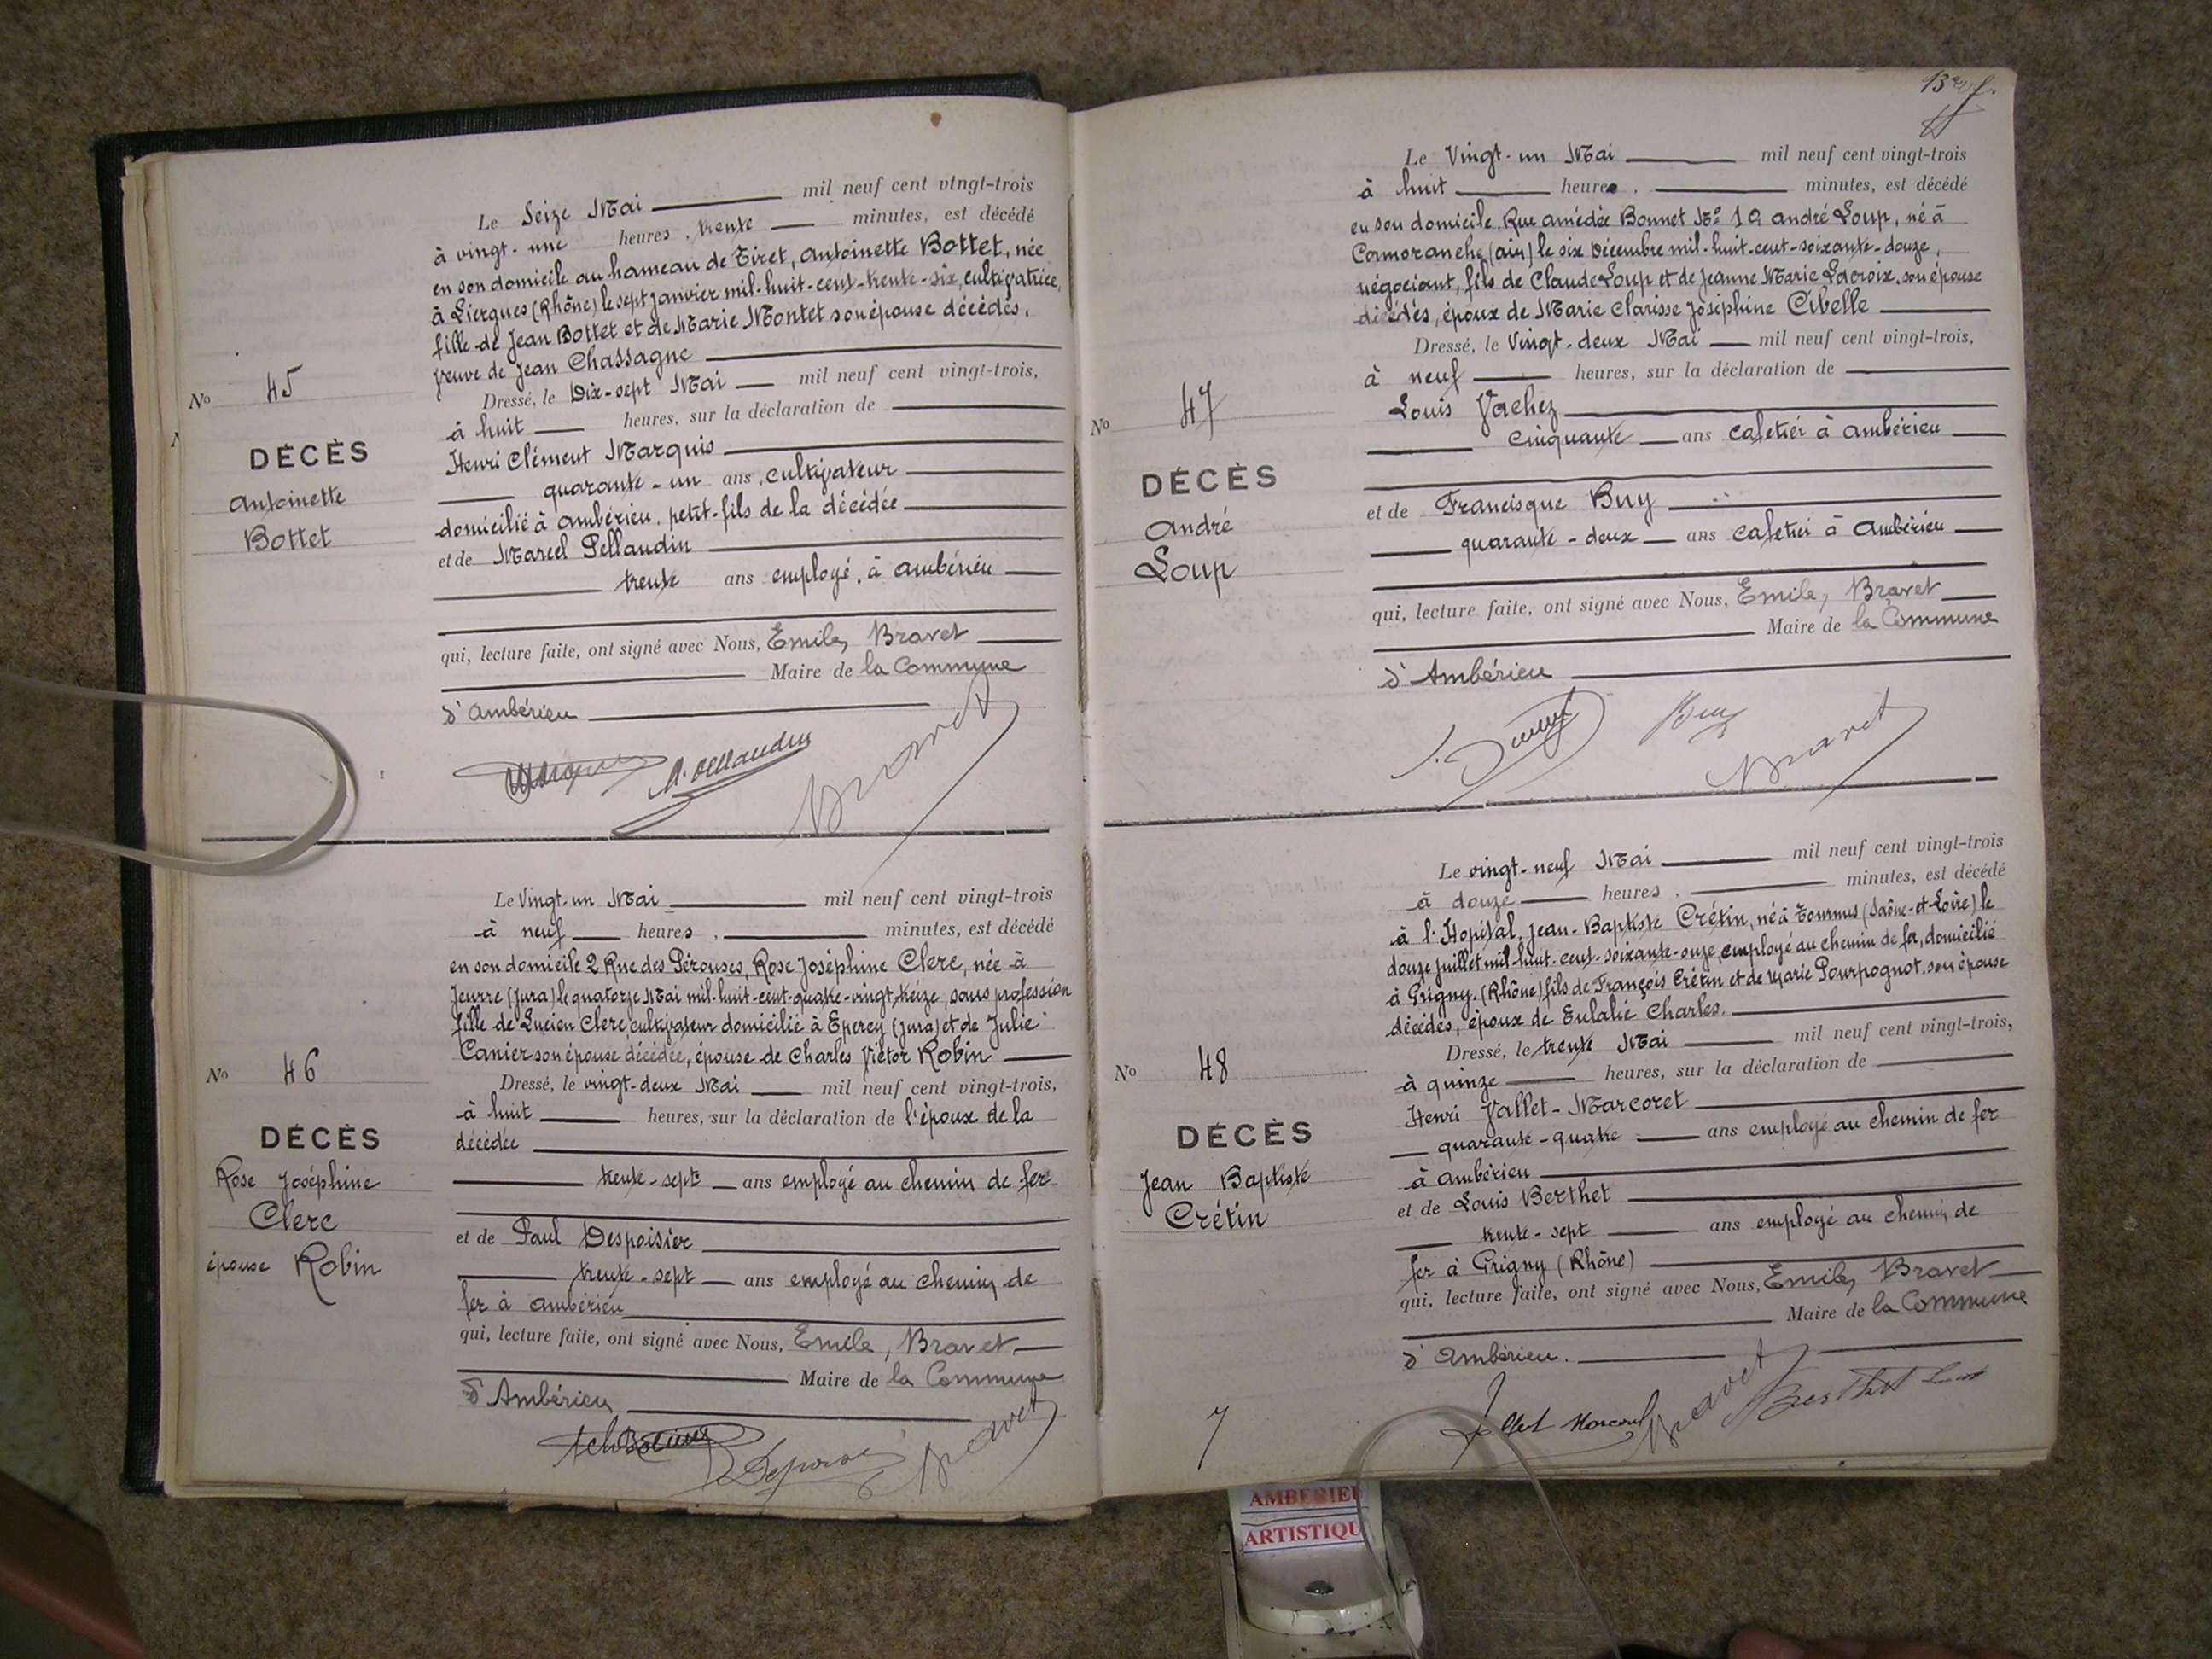 Le Seize Mai mil neuf cent vingt-trois
à vingt-une heures, trente minutes, est décédé
en son domicile au hameau de Tiret, Antoinette Bottet, née
à Liergues (Rhône) le sept janvier mil-huit-cent-trente-six, cultivatrice,
fille de Jean Bottet et de Marie Montet son épouse décédés,
veuve de Jean Chassagne
Dressé, le Dix-sept Mai mil neuf cent vingt-trois,
à huit heures, sur la déclaration de
Henri Clément Marquis
quarante-un ans, cultivateur
domicilié à Ambérieu, petit-fils de la décédée
et de Marcel Pellaudin
trente ans employé, à Ambérieu
qui, lecture faite, ont signé avec Nous, Emile, Bravet
Maire de la Commune
d'Ambérieu
Marquis
Bravet
No 45
DÉCÈS
Antoinette
Bottet
Le Vingt-un Mai mil neuf cent vingt-trois
à neuf heures, minutes, est décédé
en son domicile 2 Rue des Pérouses, Rose Joséphine Clerc, née à
Jeurre (Jura) le quatorze Mai mil-huit-cent-quatre-vingt-treize, sans profession
fille de Lucien Clerc cultivateur domicilié à Epercy (Jura) et de Julie
Canier son épouse décédée, épouse de Charles Victor Robin
Dressé, le vingt-deux Mai mil neuf cent vingt-trois,
à huit heures, sur la déclaration de l'époux de la
décédée
trente-sept ans employé au chemin de fer
et de Paul Despoisier
trente-sept ans employé au chemin de
fer à Ambérieu
qui, lecture faite, ont signé avec Nous, Emile, Bravet
Maire de la Commune
d'Ambérieu
Bravet
No 46
DÉCÈS
Rose Joséphine
Clerc
épouse Robin
Le Vingt-un Mai mil neuf cent vingt-trois
à huit heures, minutes, est décédé
en son domicile Rue Amédée Bonnet No 10 André Loup, né à
Cormoranche (Ain) le six Décembre mil-huit-cent-soixante-douze,
négociant, fils de Claude Loup et de Jeanne Marie Lacroix, son épouse
décédés, époux de Marie Clarisse Joséphine Cibelle
Dressé, le Vingt-deux Mai mil neuf cent vingt-trois,
à neuf heures, sur la déclaration de
Louis Vachez
cinquante ans cafetier à Ambérieu
et de Francisque Buy
quarante-deux ans cafetier à Ambérieu
qui, lecture faite, ont signé avec Nous, Emile, Bravet
Maire de la Commune
d'Ambérieu
Buy
Bravet
No 47
DÉCÈS
André
Loup
Le vingt-neuf Mai mil neuf cent vingt-trois
à douze heures, minutes, est décédé
à l'Hopital, Jean-Baptiste Crétin, né à Tournus (Saône-et-Loire) le
douze juillet mil-huit-cent-soixante-onze, employé au chemin de fer, domicilié
à Grigny (Rhône) fils de François Crétin et de Marie Pourpognot son épouse
décédés, époux de Eulalie Charles.
Dressé, le trente Mai mil neuf cent vingt-trois,
à quinze heures, sur la déclaration de
Henri Vallet-Marcoret
quarante-quatre ans employé au chemin de fer
à Ambérieu
et de Louis Berthet
trente-sept ans employé au chemin de
fer à Grigny (Rhône)
qui, lecture faite, ont signé avec Nous, Emile, Bravet
Maire de la Commune
d'Ambérieu.
Bravet
No 48
DÉCÈS
Jean Baptiste
Crétin
AMBERIEU
ARTISTIQU